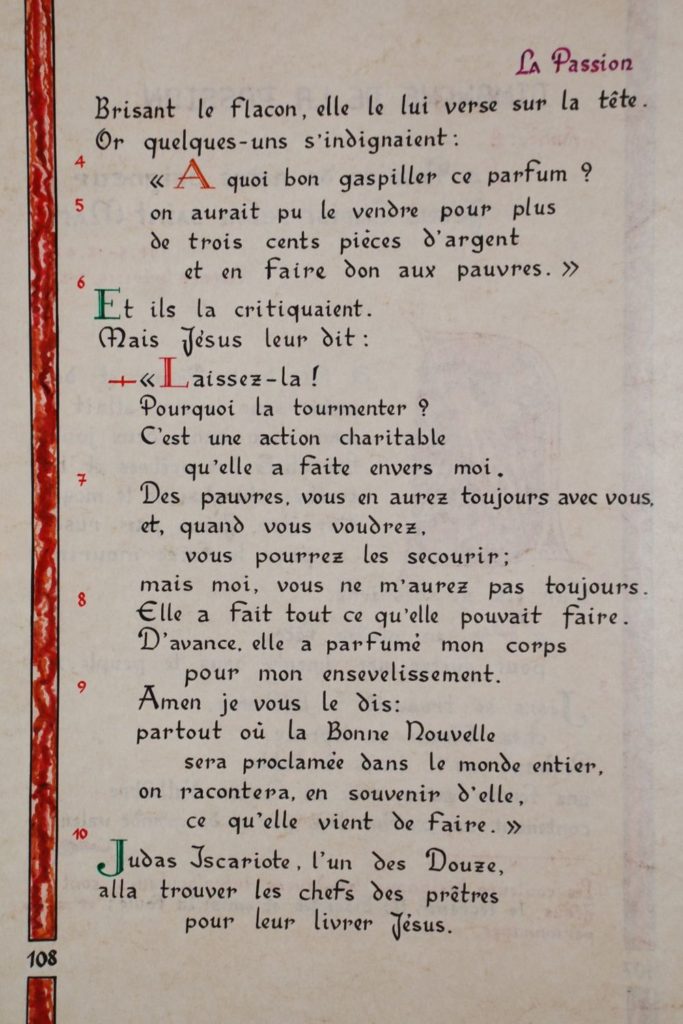 La Passion
Brisant le flacon, elle le lui verse sur la tête.
Or quelques-uns s'indignaient :
4
« A quoi bon gaspiller ce parfum ?
5
on aurait pu le vendre pour plus
de trois cents pièces d'argent
et en faire don aux pauvres. »
6
Et ils la critiquaient.
Mais Jésus leur dit :
+ « Laissez-la !
Pourquoi la tourmenter ?
C'est une action charitable
qu'elle a faite envers moi.
7
Des pauvres, vous en aurez toujours avec vous,
et, quand vous voudrez,
vous pourrez les secourir ;
mais moi, vous ne m'aurez pas toujours.
8
Elle a fait tout ce qu'elle pouvait faire.
D'avance, elle a parfumé mon corps
pour mon ensevelissement.
9
Amen je vous le dis :
partout où la Bonne Nouvelle
sera proclamée dans le monde entier,
on racontera, en souvenir d'elle,
ce qu'elle vient de faire. »
10
Judas Iscariote, l'un des Douze,
alla trouver les chefs des prêtres
pour leur livrer Jésus.
108